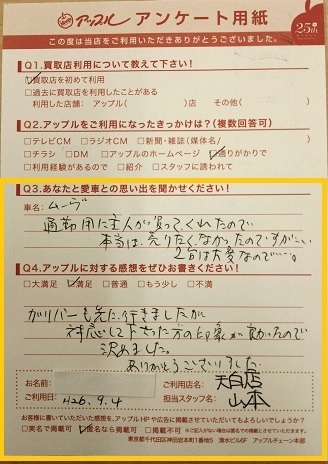 アップル アンケート用紙
25th
この度は当店をご利用いただきありがとうございました。
Q1.買取店利用について教えて下さい!
☑買取店を初めて利用
□過去に買取店を利用したことがある
利用した店舗: アップル( )店 その他( )
Q2.アップルをご利用になったきっかけは?(複数回答可)
□テレビCM □ラジオCM □新聞・雑誌(媒体名/ )
□チラシ □DM □アップルのホームページ ☑通りがかりで
□利用経験があるので □紹介 □スタッフに誘われて
Q3.あなたと愛車との思い出を聞かせてください!
車名: ムーヴ
通勤用に主人が買ってくれたので
本当は、売りたくなかったのですが…
2台は大変なので……。
Q4.アップルに対する感想をぜひお書きください!
□大満足 ☑満足 □普通 □もう少し □不満
ガリバーも先に行きましたが
対応して下さった方の印象が良かったので
決めました。
ありがとうございました
お名前:
ご利用店名: 天白店
ご利用日: H26.9.4
担当スタッフ名: 山本
お客様に書いていただいた感想を、アップルHPや広告に掲載させていただいてもよろしいでしょうか?
□実名で掲載可 ☑匿名なら掲載可 □掲載不可
東京都千代田区神田佐木町1番地5 清水ビル6F アップルチェーン本部